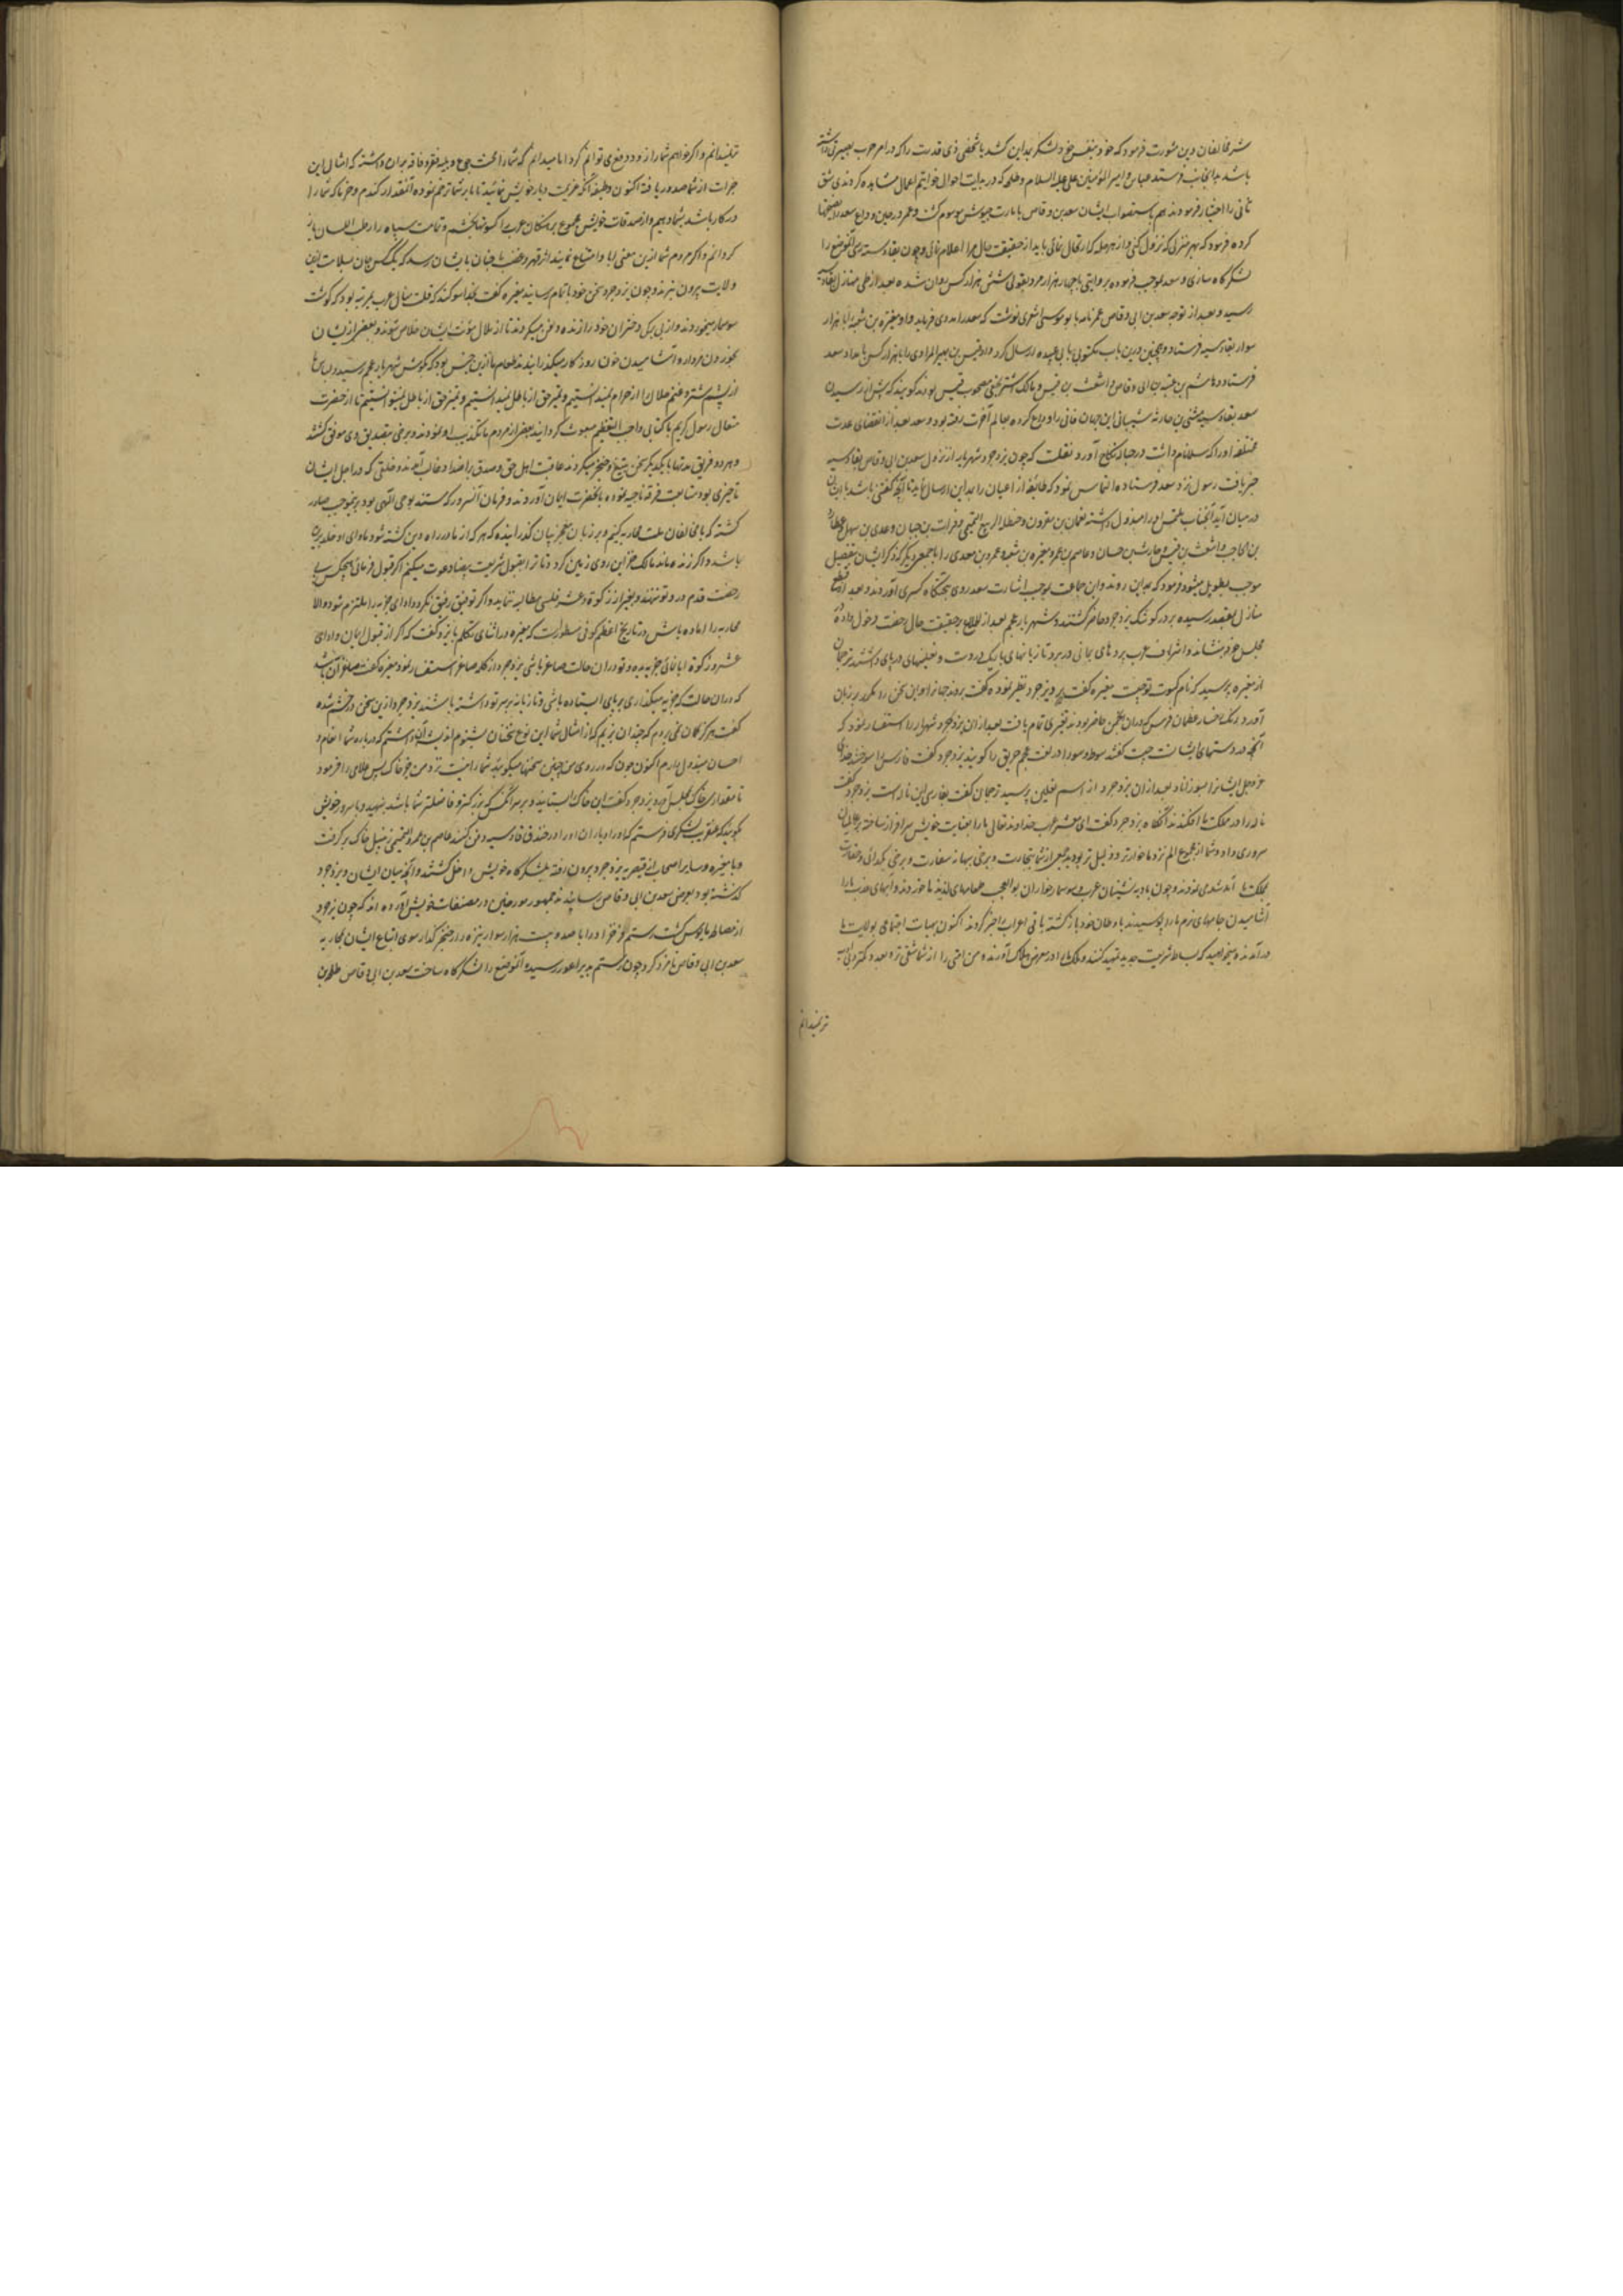 شر مخالفان دین مشورت فرمود که خود بنفس خود لشکر بداین کشد یا شخصی ذی قدرت را که در امر حرب بصیرتی داشته
باشد بدانجانب فرستد عباس و امیر المؤمنین علی علیه السلام و طلحه که در بدایت احوال خواتیم اعمال مشاهده کردندی شق
ثانی را اختیار فرمودند هم باستصواب ایشان سعد بن وقاص بامارت جیوش موسوم گشت و عمر در حین وداع سعد را نصیحتها
کرده فرمود که بهر منزلی که نزول کنی و از هر مرحله که ارتحال نمائی باید از حقیقت حال مرا اعلام نمائی و چون بقادسیه رسی آنموضع را
لشکرگاه سازی و سعد بموجب فرموده بروایتی با چهار هزار مرد و بقولی شش هزار کس روان شده بعد از طی منازل بقادسیه
رسید و بعد از توجه سعد بن ابی وقاص عمر نامه بابو موسی اشعری نوشت که سعد را مددی فرماید و او مغیره بن شعبه را با هزار
سوار بقادسیه فرستاد و همچنین درین باب مکتوبی بابی عبیده ارسال کرد و او قیس بن هبیر المرادی را با هزار کس بامداد سعد
فرستاد و هاشم بن عتبه بن ابی وقاص و اشعث بن قیس و مالک اشتر نخعی مصحوب قیس بودند گویند که پیش از رسیدن
سعد بقادسیه مثنی بن حارثه شیبانی این جهان فانی را وداع کرده بعالم آخرت رفته بود و سعد بعد از انقضای عدت
مخلفه او را که سلما نام داشت در حباله نکاح آورد و نقلست که چون یزدجرد شهریار از نزول سعد بن ابی وقاص بقادسیه
خبر یافت رسول نزد سعد فرستاده التماس نمود که طائفه از اعیان را بمداین ارسال نماید تا آنچه گفتنی باشد با ایشان
در میان آید آنجناب ملتمس او را مبذول داشته نعمان بن مقرون و حنظله الربیع التمیمی و فرات بن حیان و عدی بن سهل و عطارد
بن الحاجب و اشعث بن قیس و حارث بن حسان و عاصم بن عمر و مغیره بن شعبه و عمرو بن معدی را با جمعی دیگر که ذکر ایشان بتفصیل
موجب تطویل میشود فرمود که بمداین روند و این جماعت بموجب اشارت سعد روی بتختگاه کسری آوردند و بعد از قطع
منازل بمقصد رسیده بر در کوشک یزدجرد حاضر گشتند و شهریار عجم بعد از اطلاع بر حقیقت حال رخصت دخول داده در
مجلس خود بنشاند و اشراف عرب بردهای یمانی در بر و تازیانهای باریک در دست و نعلینهای در پای داشتند ترجمان
از مغیره پرسید که نام کسوت تو چیست مغیره گفت برد یزدجرد تطیر نموده گفت بردند جهانرا و این سخن را مکرر بر زبان
آورد و رنگ رخسار عظمای فرس که در آن انجمن حاضر بودند تغیری تمام یافت بعد از آن یزدجرد شهریار استفسار نمود که
آنچه در دستهای ایشانست چیست گفتند سوط و سوط را در لغت عجم حریق را گویند یزدجرد گفت فارس را سوختند خدای
عز و جل ایشانرا بسوزاناد بعد از آن یزدجرد از اسم نعلین پرسید ترجمان گفت بفارسی این ناله است یزدجرد گفت
ناله را در مملکت ما افکندند آنگاه یزدجرد گفت ای معشر عرب خداوند تعالی ما را بعنایت خویش سرافراز ساخته بر عالمیان
سروری داد و شما از جمیع امم نزد ما خوارتر و ذلیل تر بودید جمعی از شما بتجارت و برخی بهانه سفارت و برخی بگدائی و حقارت
بمملکت ما آمد شدی نمودند و چون بادیه نشینان عرب و سوسمارخواران بوالعجب طعامهای لذیذ ما خوردند و آبهای عذب ما را
آشامیدن جامهای نرم ما را پوشیدند باوطان خود بازگشته باقی اعراب را خبر کردند اکنون بهیات اجتماعی بولایت ما
در آمدند میخواهید که بساط شریعت جدید تمهید کنند و ملک ما را در معرض هلاک آورند و من امتی را از شما شقی تر و بعدد کمتر و بی
تر نمیدانم
تر نمیدانم و اگر خواهم شما را زود دفع توانم کرد اما میدانم که شما را محنت جوع و بلیه فقر و فاقه بر آن داشته که امثال این
جرات از شما صدور یافته اکنون وظیفه آنکه عزیمت دیار خویش نمائید تا ما بر شما ترحم نموده آنقدر از گندم و خرما که شما را
در کار باشد بشما دهیم و از صدقات خویش مجموع برهنگان عرب را کسوتها بخشیم و تمامت سپاه را رطب اللسان باز
گردانم و اگر مردم شما ازین معنی ابا و امتناع نمایند اثر قهر و غضب ما چنان بایشان رسد که یک کس جان بسلامت ازین
ولایت بیرون نبرند و چون یزدجرد سخن خود باتمام رسانید مغیره گفت بخدا سوگند که قلت منال عرب بمرتبه بود که گوشت
سوسمار میخوردند و از بی برگی دختران خود را زنده دفن میکردند تا از ملال مؤنت ایشان خلاص شوند و بعضی از ایشان
بخوردن مردار و آشامیدن خون روزگار میگذرانیدند طعام ما ازین جنس بود که بگوش شهریار عجم رسید و لباس ما
از پشم شتر و غنم حلال را از حرام نمیدانستیم و تمیز حق از باطل نمیتوانستیم تا از حضرت
متعال رسول کریم با کتابی واجب التعظیم مبعوث گردانید بعضی از مردم ما تکذیب او نمودند و برخی بتصدیق وی موفق گشتند
و هر دو فریق مدتها با یکدیگر سخن بتیغ و خنجر میکردند عاقبت اهل حق و صدق بر اضداد غالب آمدند و خلقی که در اجل ایشان
تاخیری بود متابعت فرقه ناجیه نموده بآنحضرت ایمان آوردند و فرمان آنسرور که مستند بوحی الهی بود برینموجب صادر
گشته که با مخالفان ملت محاربه کنیم و بر زبان معجز بیان گذرانیده که هر که از ما در راه دین کشته شود ماوای او خلد برین
باشد و اگر زنده ماند مالک خزاین روی زمین گردد و ترا بقبول شریعت بیضا دعوت میکنم اگر قبول فرمائی هیچکس بی
رخصت قدم در تو ننهند و بغیر از زکوة و عشر فلسی مطالبه ننماید و اگر توفیق رفیق نگردد ادای جزیه را ملتزم شو و الا
محاربه را آماده باش در تاریخ اعثم کوفی مسطورست که مغیره در اثنای تکلم با یزدجرد گفت که اگر از قبول ایمان و ادای
عشر و زکوة ابا نمائی جزیه بده و تو در آن حالت صاغر باشی یزدجرد از کلمه صاغر استفسار نمود مغیره گفت صاغر آن باشد
که در آن حالت که جزیه میگذاری بر پای ایستاده باشی و تازیانه بر سر تو داشته باشند یزدجرد ازین سخن در خشم شده
گفت هرگز گمان نمی بردم که چندان بزیم که از امثال شما این نوع سخنان بشنوم اندیشه آن داشتم که درباره شما انعام و
احسان مبذول دارم اکنون چون که در روی من چنین سخنها میگوئید شما را نیست نزد من جز خاک پس غلامی را فرمود
تا مقداری خاک بمجلس آورد یزدجرد گفت این خاک را بستانید و بر سر آنکس که بزرگتر و فاضلتر شما باشد بنهید و با سرور خویش
بگوئید که عنقریب لشکری فرستم که او را و یاران او را در خندق قادسیه دفن کنند عاصم بن عمرو التمیمی زنبیل خاک برگرفت
و با مغیره و سایر اصحاب از قصر یزدجرد بیرون رفته بلشکرگاه خویش داخل گشتند و آنچه میان ایشان و یزدجرد
گذشته بود بعرض سعد بن ابی وقاص رسانیدند جمهور مورخین در مصنفات خویش آورده اند که چون یزدجرد
از مصالحه مایوس گشت رستم فرخزاد را با صد و بیست هزار سوار نیزه دار خنجر گذار سوی اتباع ایشان بمحاربه
سعد بن ابی وقاص نامزد کرد چون رستم بدیر اعور رسیده آنموضع را لشکرگاه ساخت سعد بن ابی وقاص